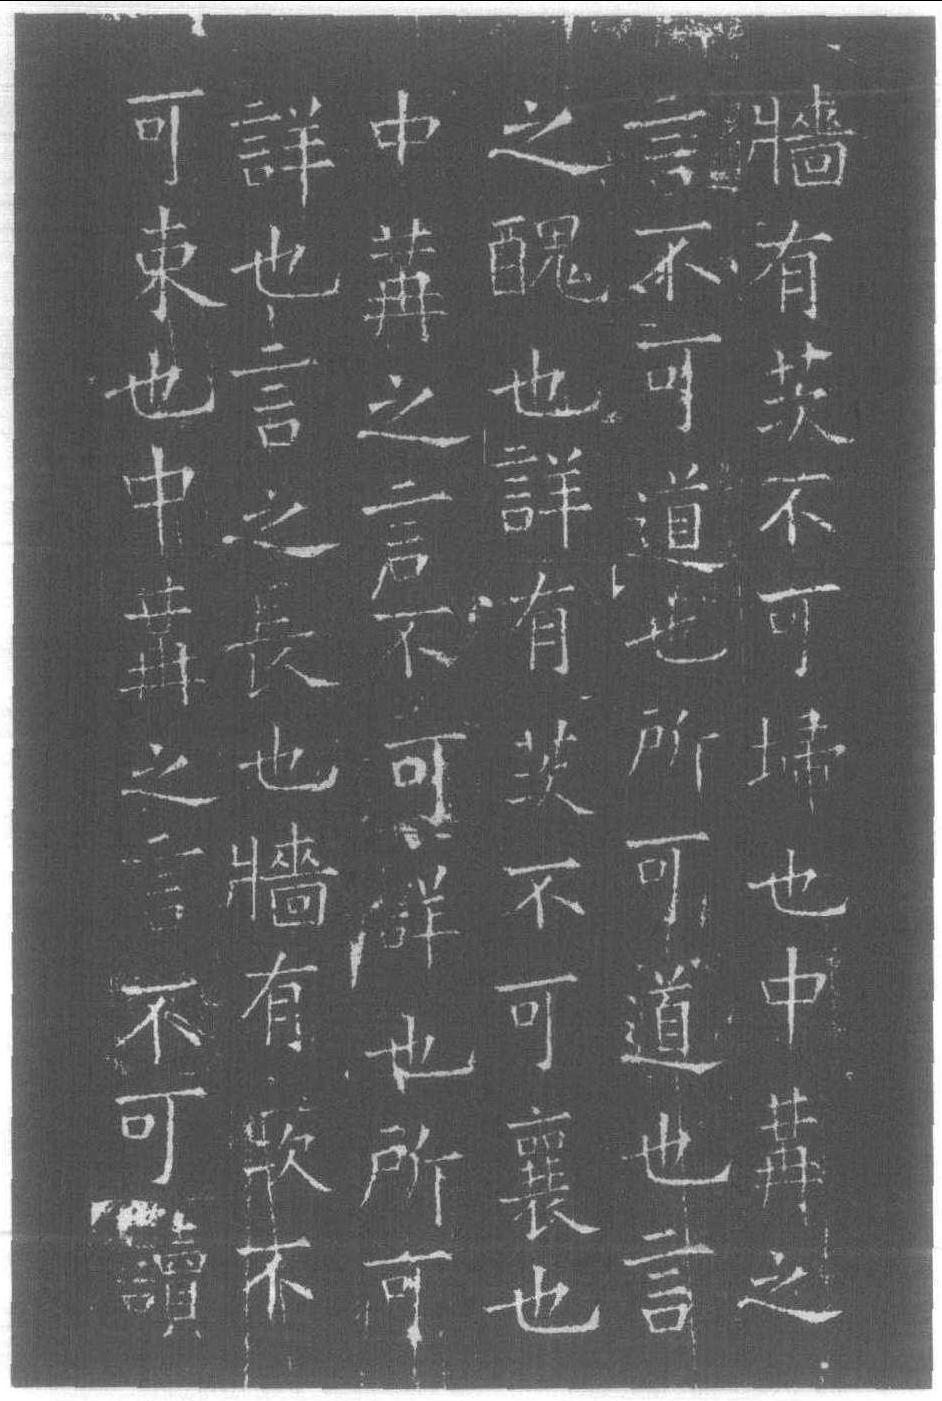 牆有茨不可埽也中冓之
言不可道也所可道也言
之醜也詳有茨不可襄也
中冓之言不可詳也所可
詳也言之長也牆有不
可束也中冓之言不可讀